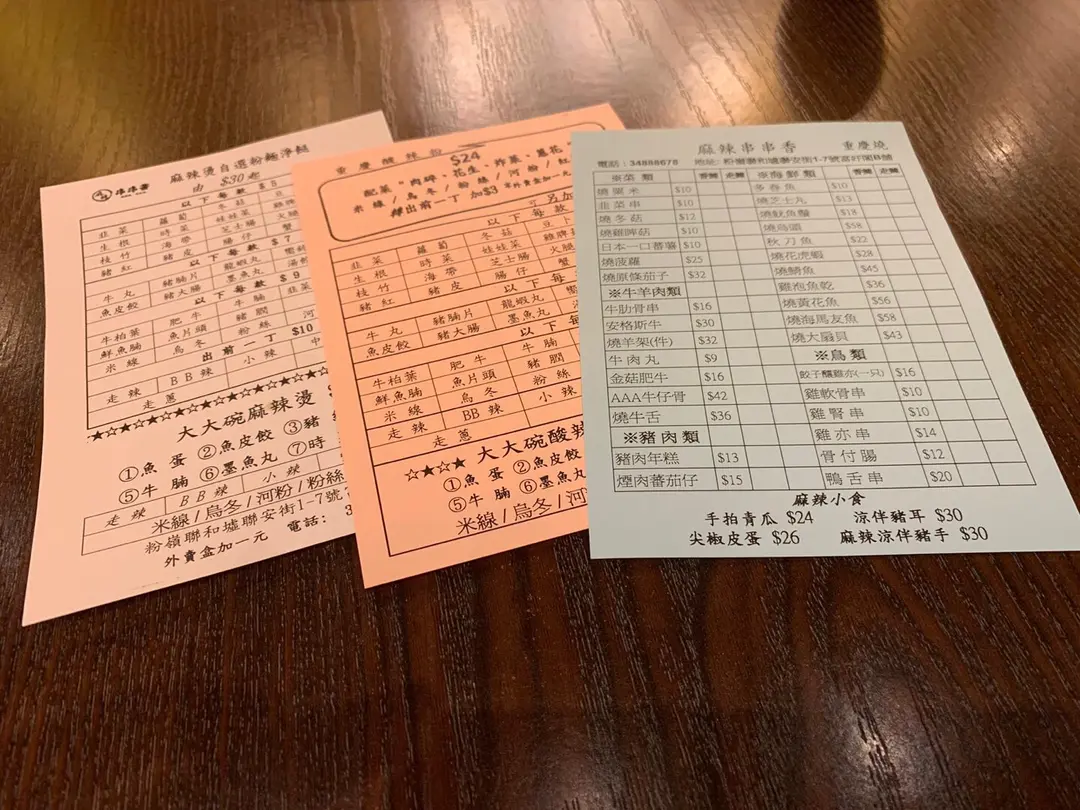 麻辣燙自選粉麵淨餸
串串香
由 $30起
以下每款 $5
韭菜 蘿蔔 冬菇 豆
生根 時菜 娃娃菜 雞
桂竹 海帶 芝士腸 火腿
豬紅 豬皮 腸仔 蟹
以下每款 $7
牛丸 豬腩片 龍蝦丸
魚皮餃 豬大腸 墨魚丸
以下每款 $9
牛柏葉 肥牛 牛腩
鮮魚腩 魚片頭 豬膶
米線 烏冬 粉絲 河
出前一丁 $10
走辣 BB辣 小辣 中
走蔥
大大碗麻辣燙
①魚蛋 ②魚皮餃 ③豬
⑤牛腩 ⑥墨魚丸 ⑦時
走辣 BB辣 小辣
米線/烏冬/河粉/粉絲
粉嶺聯和墟聯安街1-7號
電話: 3
外賣盒加一元
重慶酸辣粉
$24
配菜"肉碎、花生、炸菜、蔥花
米線/烏冬/粉絲/河粉/紅
轉出前一丁 加$3 *外賣盒加一元
可另加
以下每款
韭菜 蘿蔔 冬菇 豆卜
生根 時菜 娃娃菜
桂竹 海帶 芝士腸 火腿
豬紅 豬皮 腸仔 蟹
以下每
牛丸 豬腩片 龍蝦丸
魚皮餃 豬大腸 墨魚丸
以下每
牛柏葉 肥牛 牛腩
鮮魚腩 魚片頭 豬膶
米線 烏冬 粉絲
走辣 BB辣 小辣
走蔥
☆★☆★ 大大碗酸辣
①魚蛋 ②魚皮餃
⑤牛腩 ⑥墨魚丸
米線/烏冬/河粉
麻辣串串香 重慶燒
電話：34888678 地址: 粉嶺聯和墟聯安街1-7號富好閣B舖
※菜類 香辣 走辣 ※海鮮類 香辣 走辣
燒粟米 $10 多春魚 $10
韭菜串 $10 燒芝士丸 $13
燒冬菇 $12 燒魷魚鬚 $18
燒雞啤菇 $10 燒烏頭 $58
日本一口蕃薯 $10 秋刀魚 $22
燒菠蘿 $25 燒花虎蝦 $28
燒原條茄子 $32 燒鯖魚 $45
※牛羊肉類 雞泡魚乾 $36
牛肋骨串 $16 燒黃花魚 $56
安格斯牛 $30 燒海馬友魚 $58
燒羊架(件) $32 燒大扇貝 $43
牛肉丸 $9 ※鳥類
金菇肥牛 $16 餃子釀雞亦(一只) $16
AAA牛仔骨 $42 雞軟骨串 $10
燒牛舌 $36 雞腎串 $10
※豬肉類 雞亦串 $14
豬肉年糕 $13 骨付腸 $12
煙肉蕃茄仔 $15 鴨舌串 $20
麻辣小食
手拍青瓜 $24 涼伴豬耳 $30
尖椒皮蛋 $26 麻辣涼伴豬手 $30